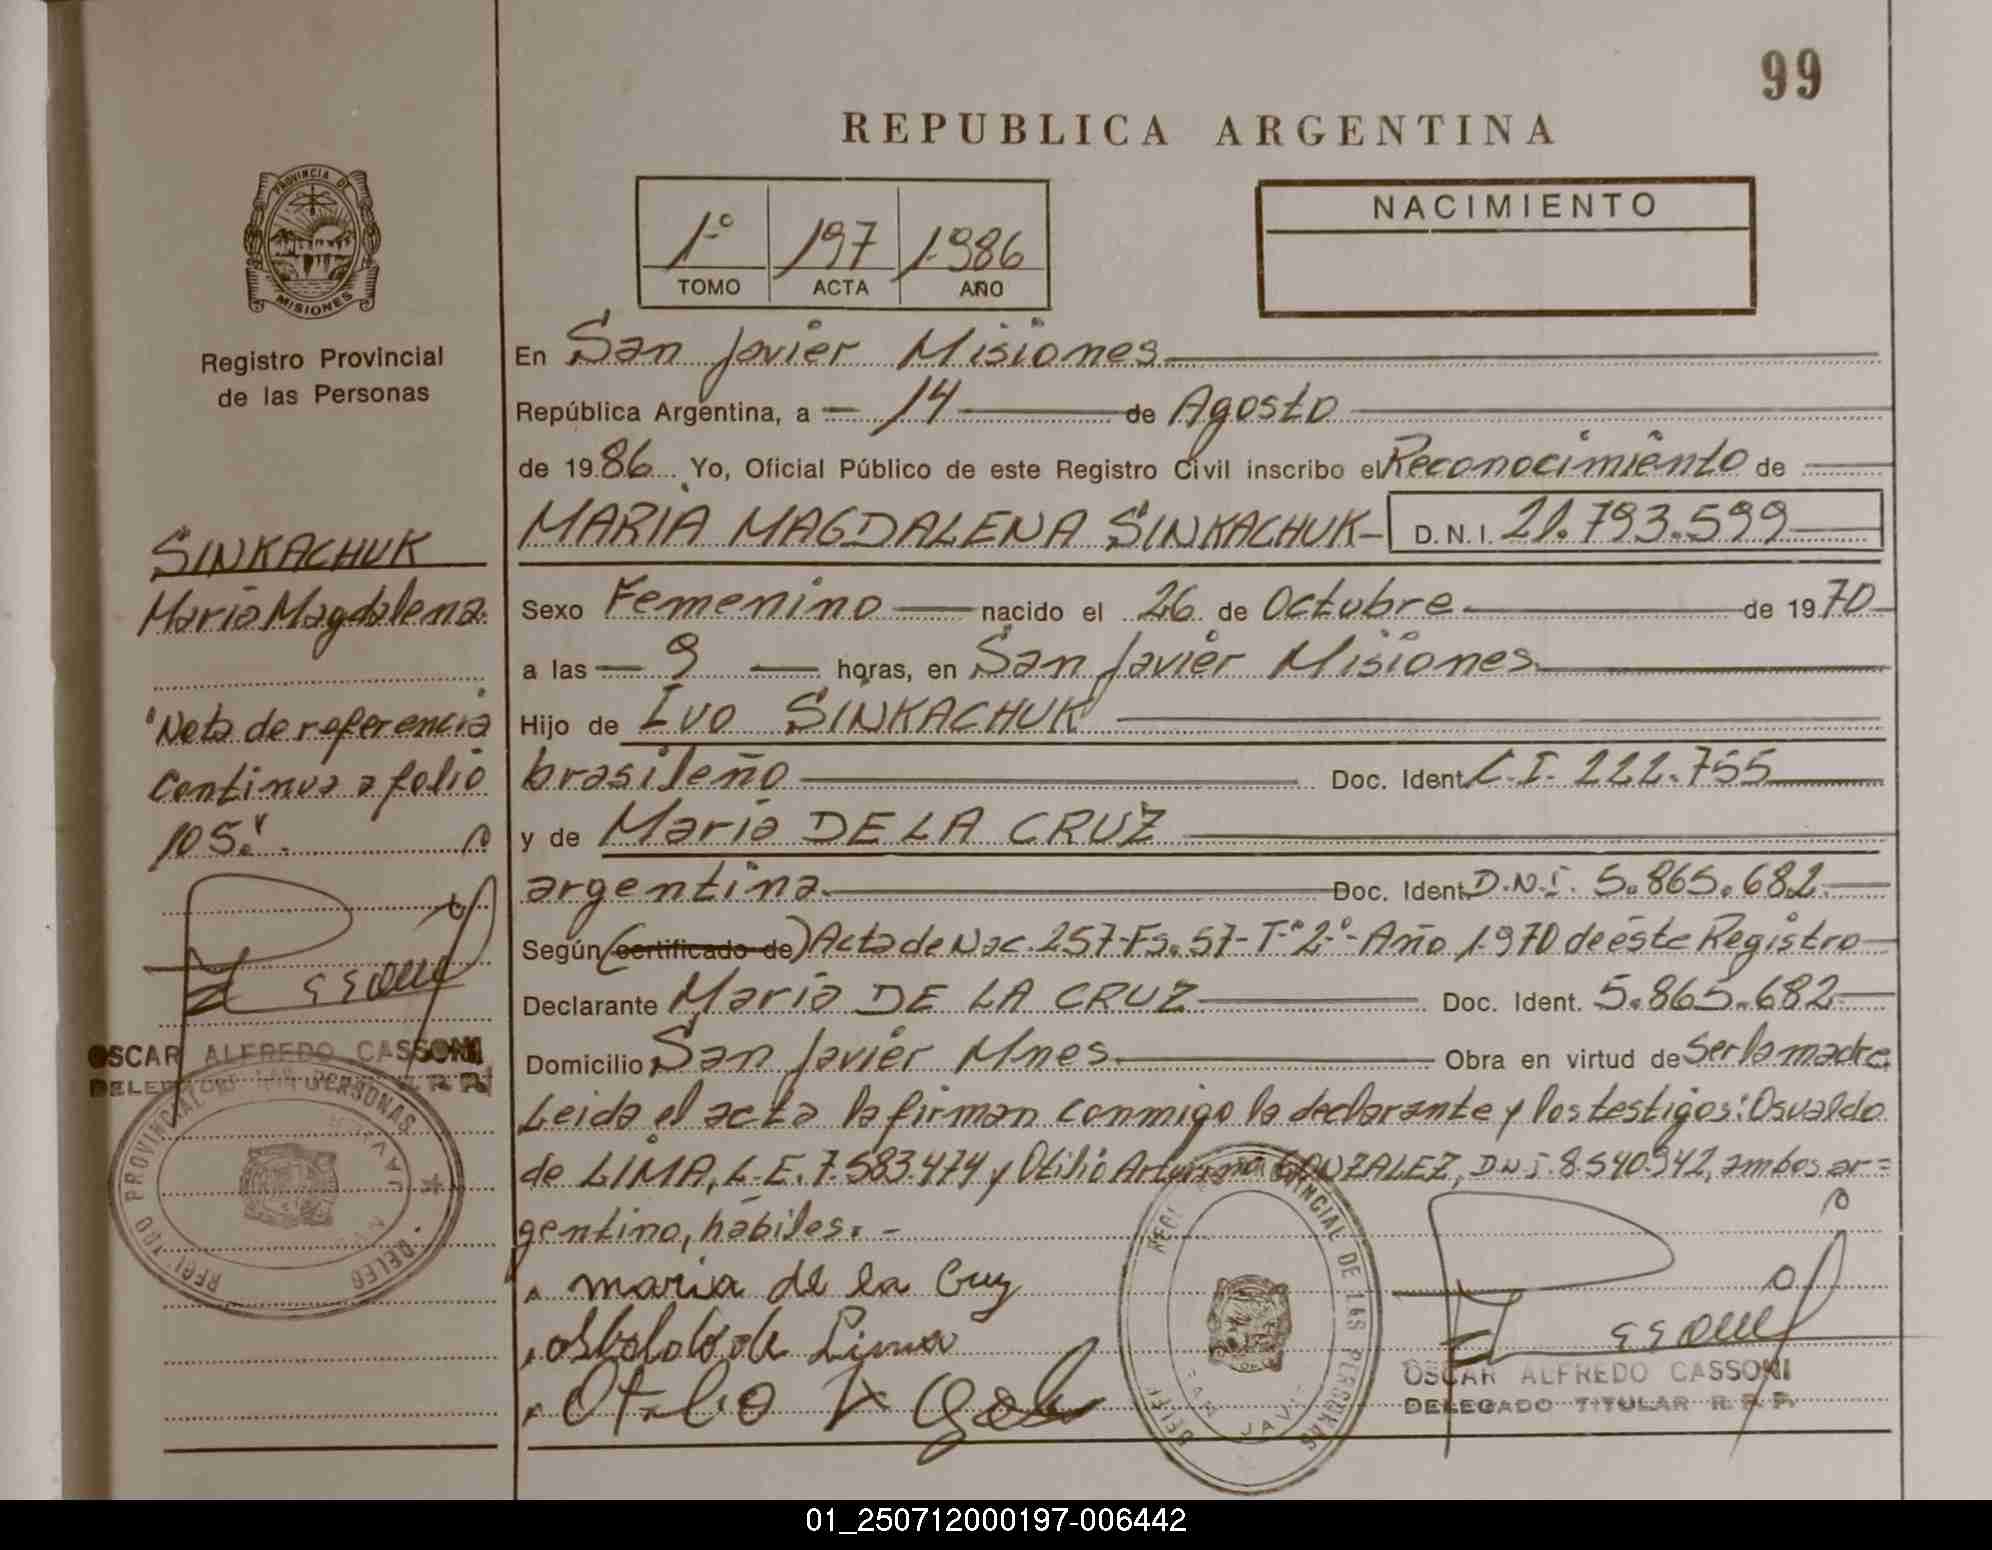 99
REPUBLICA ARGENTINA
PROVINCIA DE
MISIONES
Registro Provincial
de las Personas
1º 197 1986
TOMO ACTA AÑO
NACIMIENTO
En San Javier Misiones
República Argentina, a 14 de Agosto
de 19 86 Yo, Oficial Público de este Registro Civil inscribo el Reconocimiento de
MARIA MAGDALENA SINKACHUK- D.N.I. 21.793.599
Sexo Femenino nacido el 26 de Octubre de 19 70
a las 9 horas, en San Javier Misiones
Hijo de Ivo SINKACHUK
brasileño Doc. Ident. C.I. 222.755
y de Maria DE LA CRUZ
argentina Doc. Ident. D.N.I. 5.865.682
Según (certificado de) Acta de Nac. 257-Fs. 57-Tº 2º-Año 1970 de éste Registro
Declarante Maria DE LA CRUZ Doc. Ident. 5.865.682
Domicilio San Javier Mnes Obra en virtud de Ser la madre
Leida el acta la firman conmigo la declarante y los testigos: Osvaldo
de LIMA, L.E. 7.583.474 y Otilio GONZALEZ, D.N.I. 8.540.942, ambos ar=
gentino, hábiles. -
maria de la Cruz
de Lima
Otilio
OSCAR ALFREDO CASSONI
DELEGADO TITULAR R.P.P.
REGISTRO PROVINCIAL DE LAS PERSONAS
SINKACHUK
Maria Magdalena
"Nota de referencia
continua a folio
105"
OSCAR ALFREDO CASSONI
DELEGADO TITULAR R.P.P.
REGISTRO PROVINCIAL DE LAS PERSONAS
01_250712000197-006442